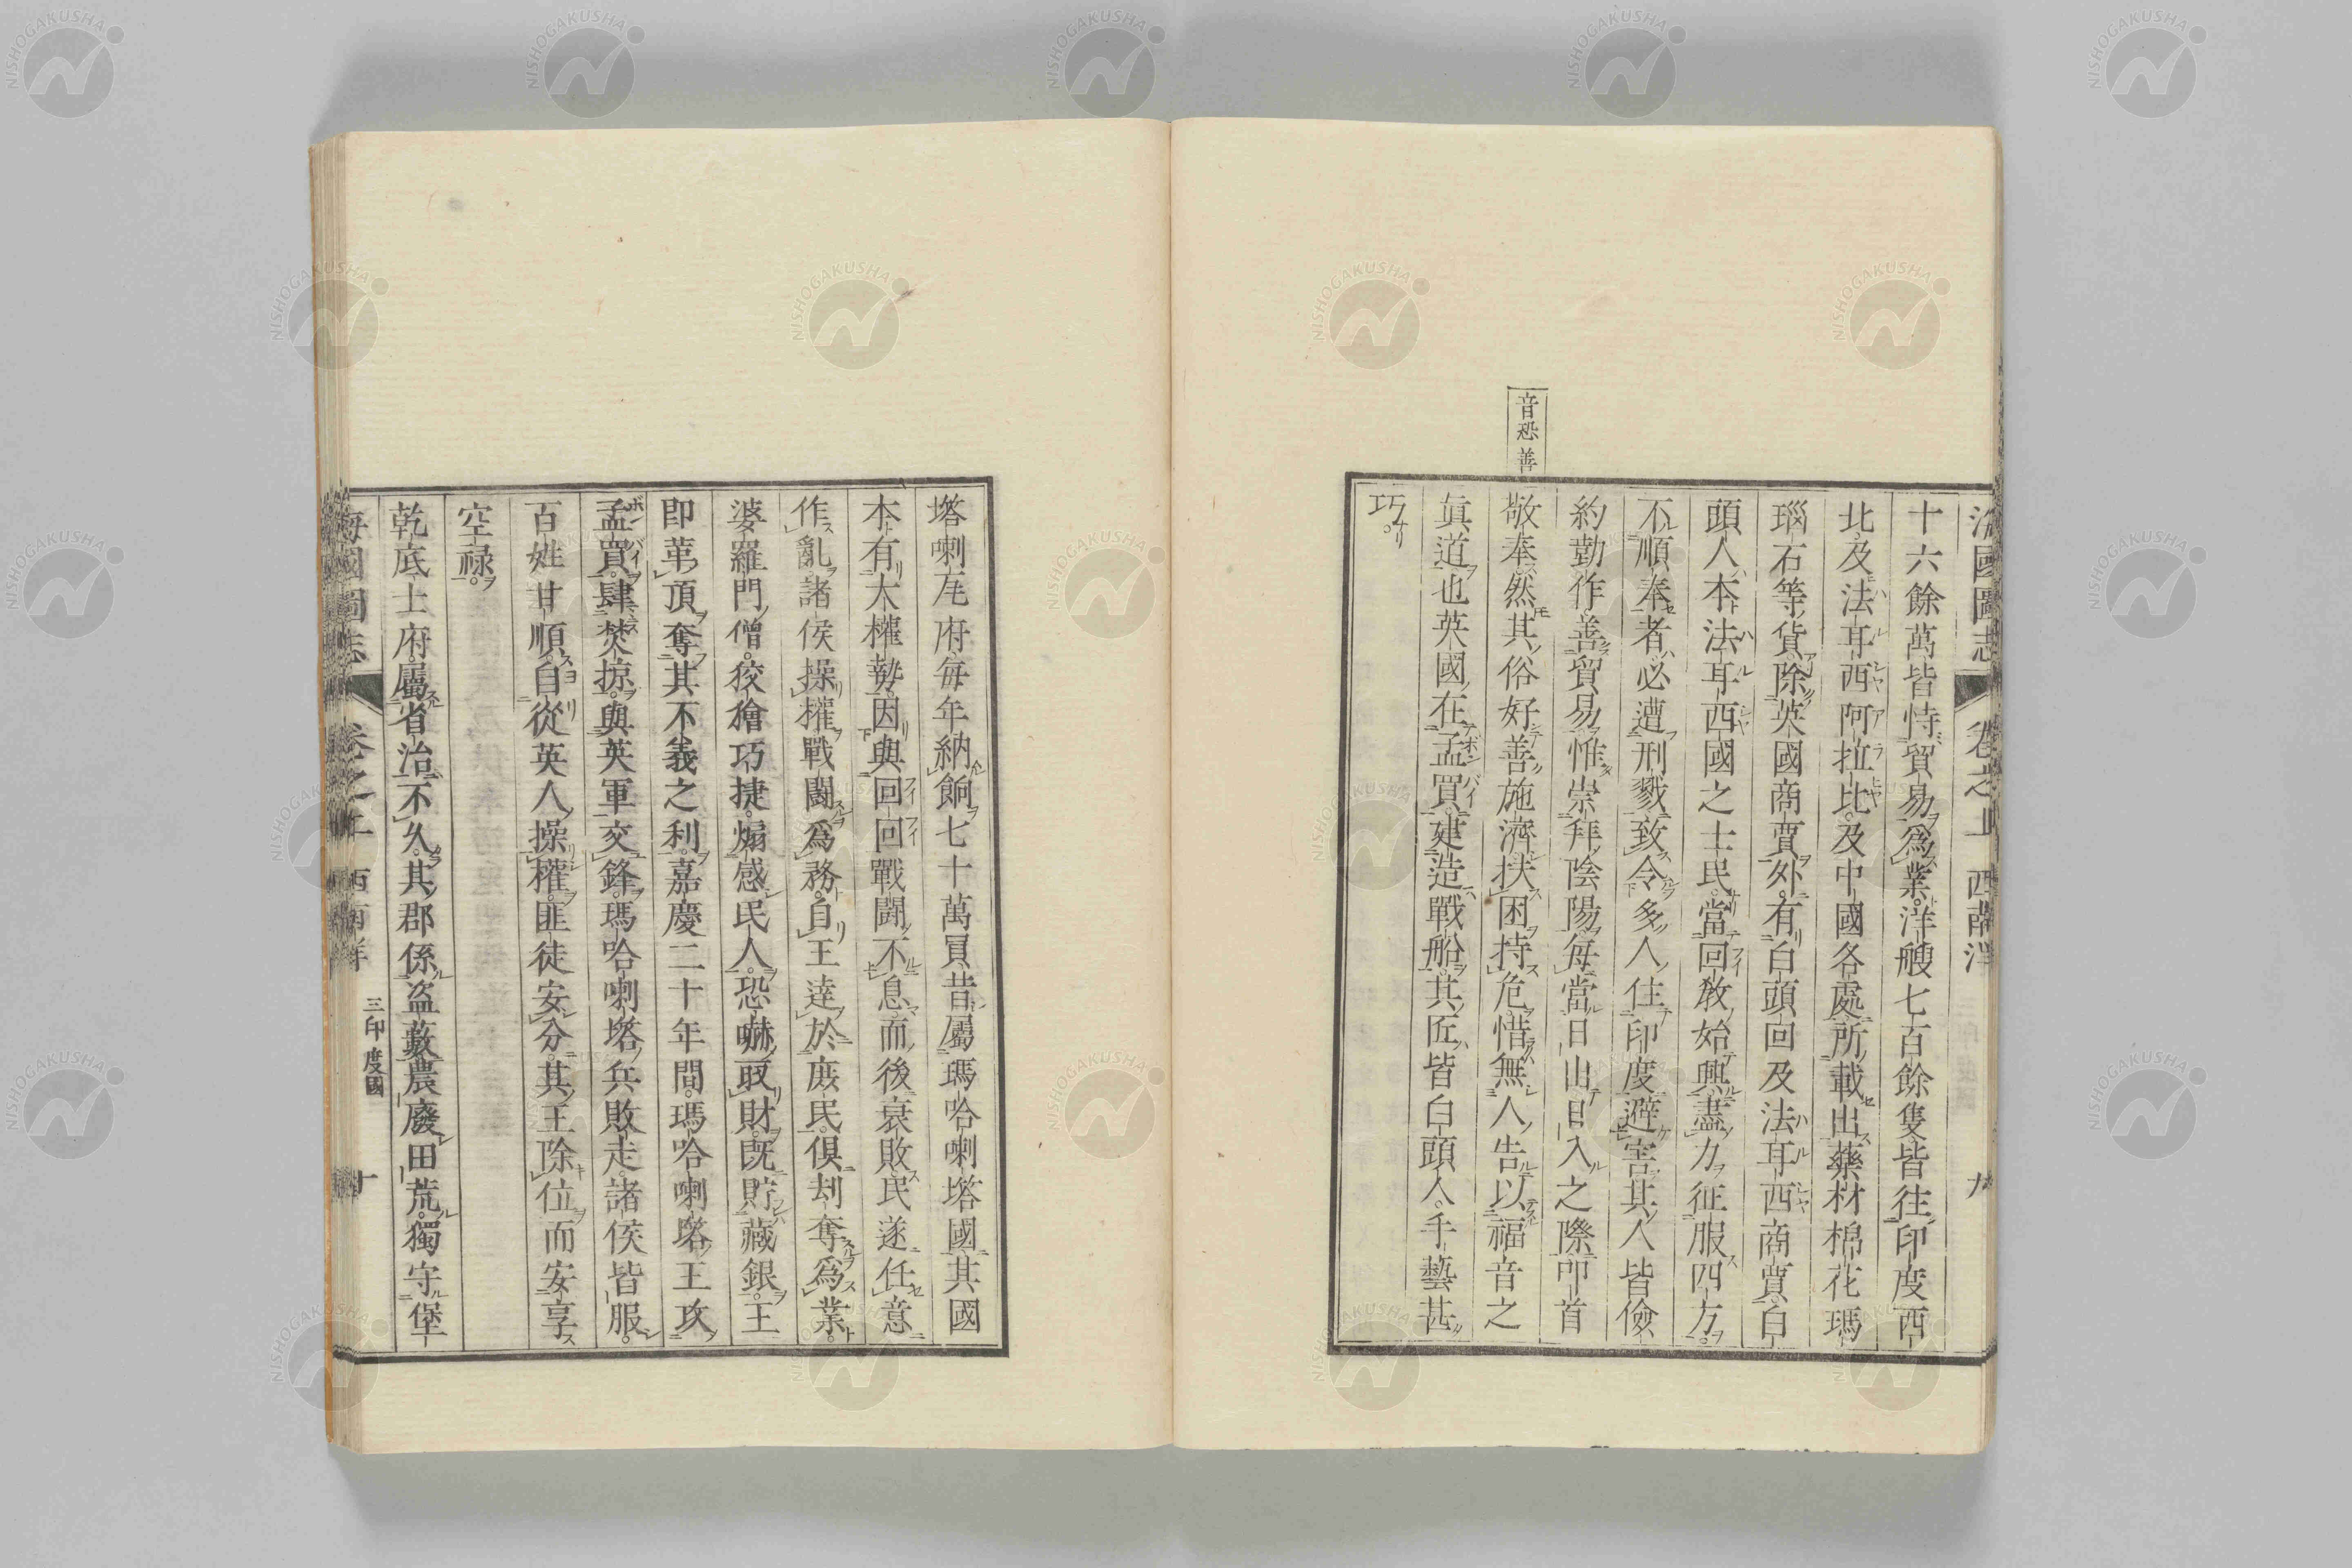 海國圖志
卷之上
西南洋
九
十六餘萬皆恃貿易爲業。洋艘七百餘隻皆往印度西
北及法耳西阿拉比。及中國各處所載出藥材棉花瑪
瑙石等貨。除英國商賈外。有白頭回及法耳西商賈。白
頭人本法耳西國之士民。當回敎始興。盡力征服四方。
不順奉者必遭刑戮致令多人住印度避害其人皆儉
約勤作善貿易惟崇拜陰陽每當日出日入之際叩首
敬奉。然其俗好善施濟扶困持危。惜無人告以福音之
眞道也英國在孟買。建造戰船。其匠皆白頭人。手藝甚
巧。
音恐善
塔喇㡯府每年納餉七十萬員昔屬瑪哈喇塔國其國
本有大權勢因與回回戰闘不息而後衰敗民遂任意
作亂。諸侯操權戰闘爲務自王達於庶民。俱刦奪爲業。
婆羅門僧。狡獪巧捷。煽惑民人。恐嚇取財。旣貯藏銀。王
即革頂奪其不義之利。嘉慶二十年間。瑪哈喇塔王攻
孟買。肆焚掠。與英軍交鋒。瑪哈喇塔兵敗走。諸侯皆服。
百姓甘順。自從英人操權。匪徒安分。其王除位而安享
空祿。
乾底士府。屬省治不久。其郡係盗藪農廢田荒。獨守堡
海國圖志
卷之
西南洋
三印度國
十